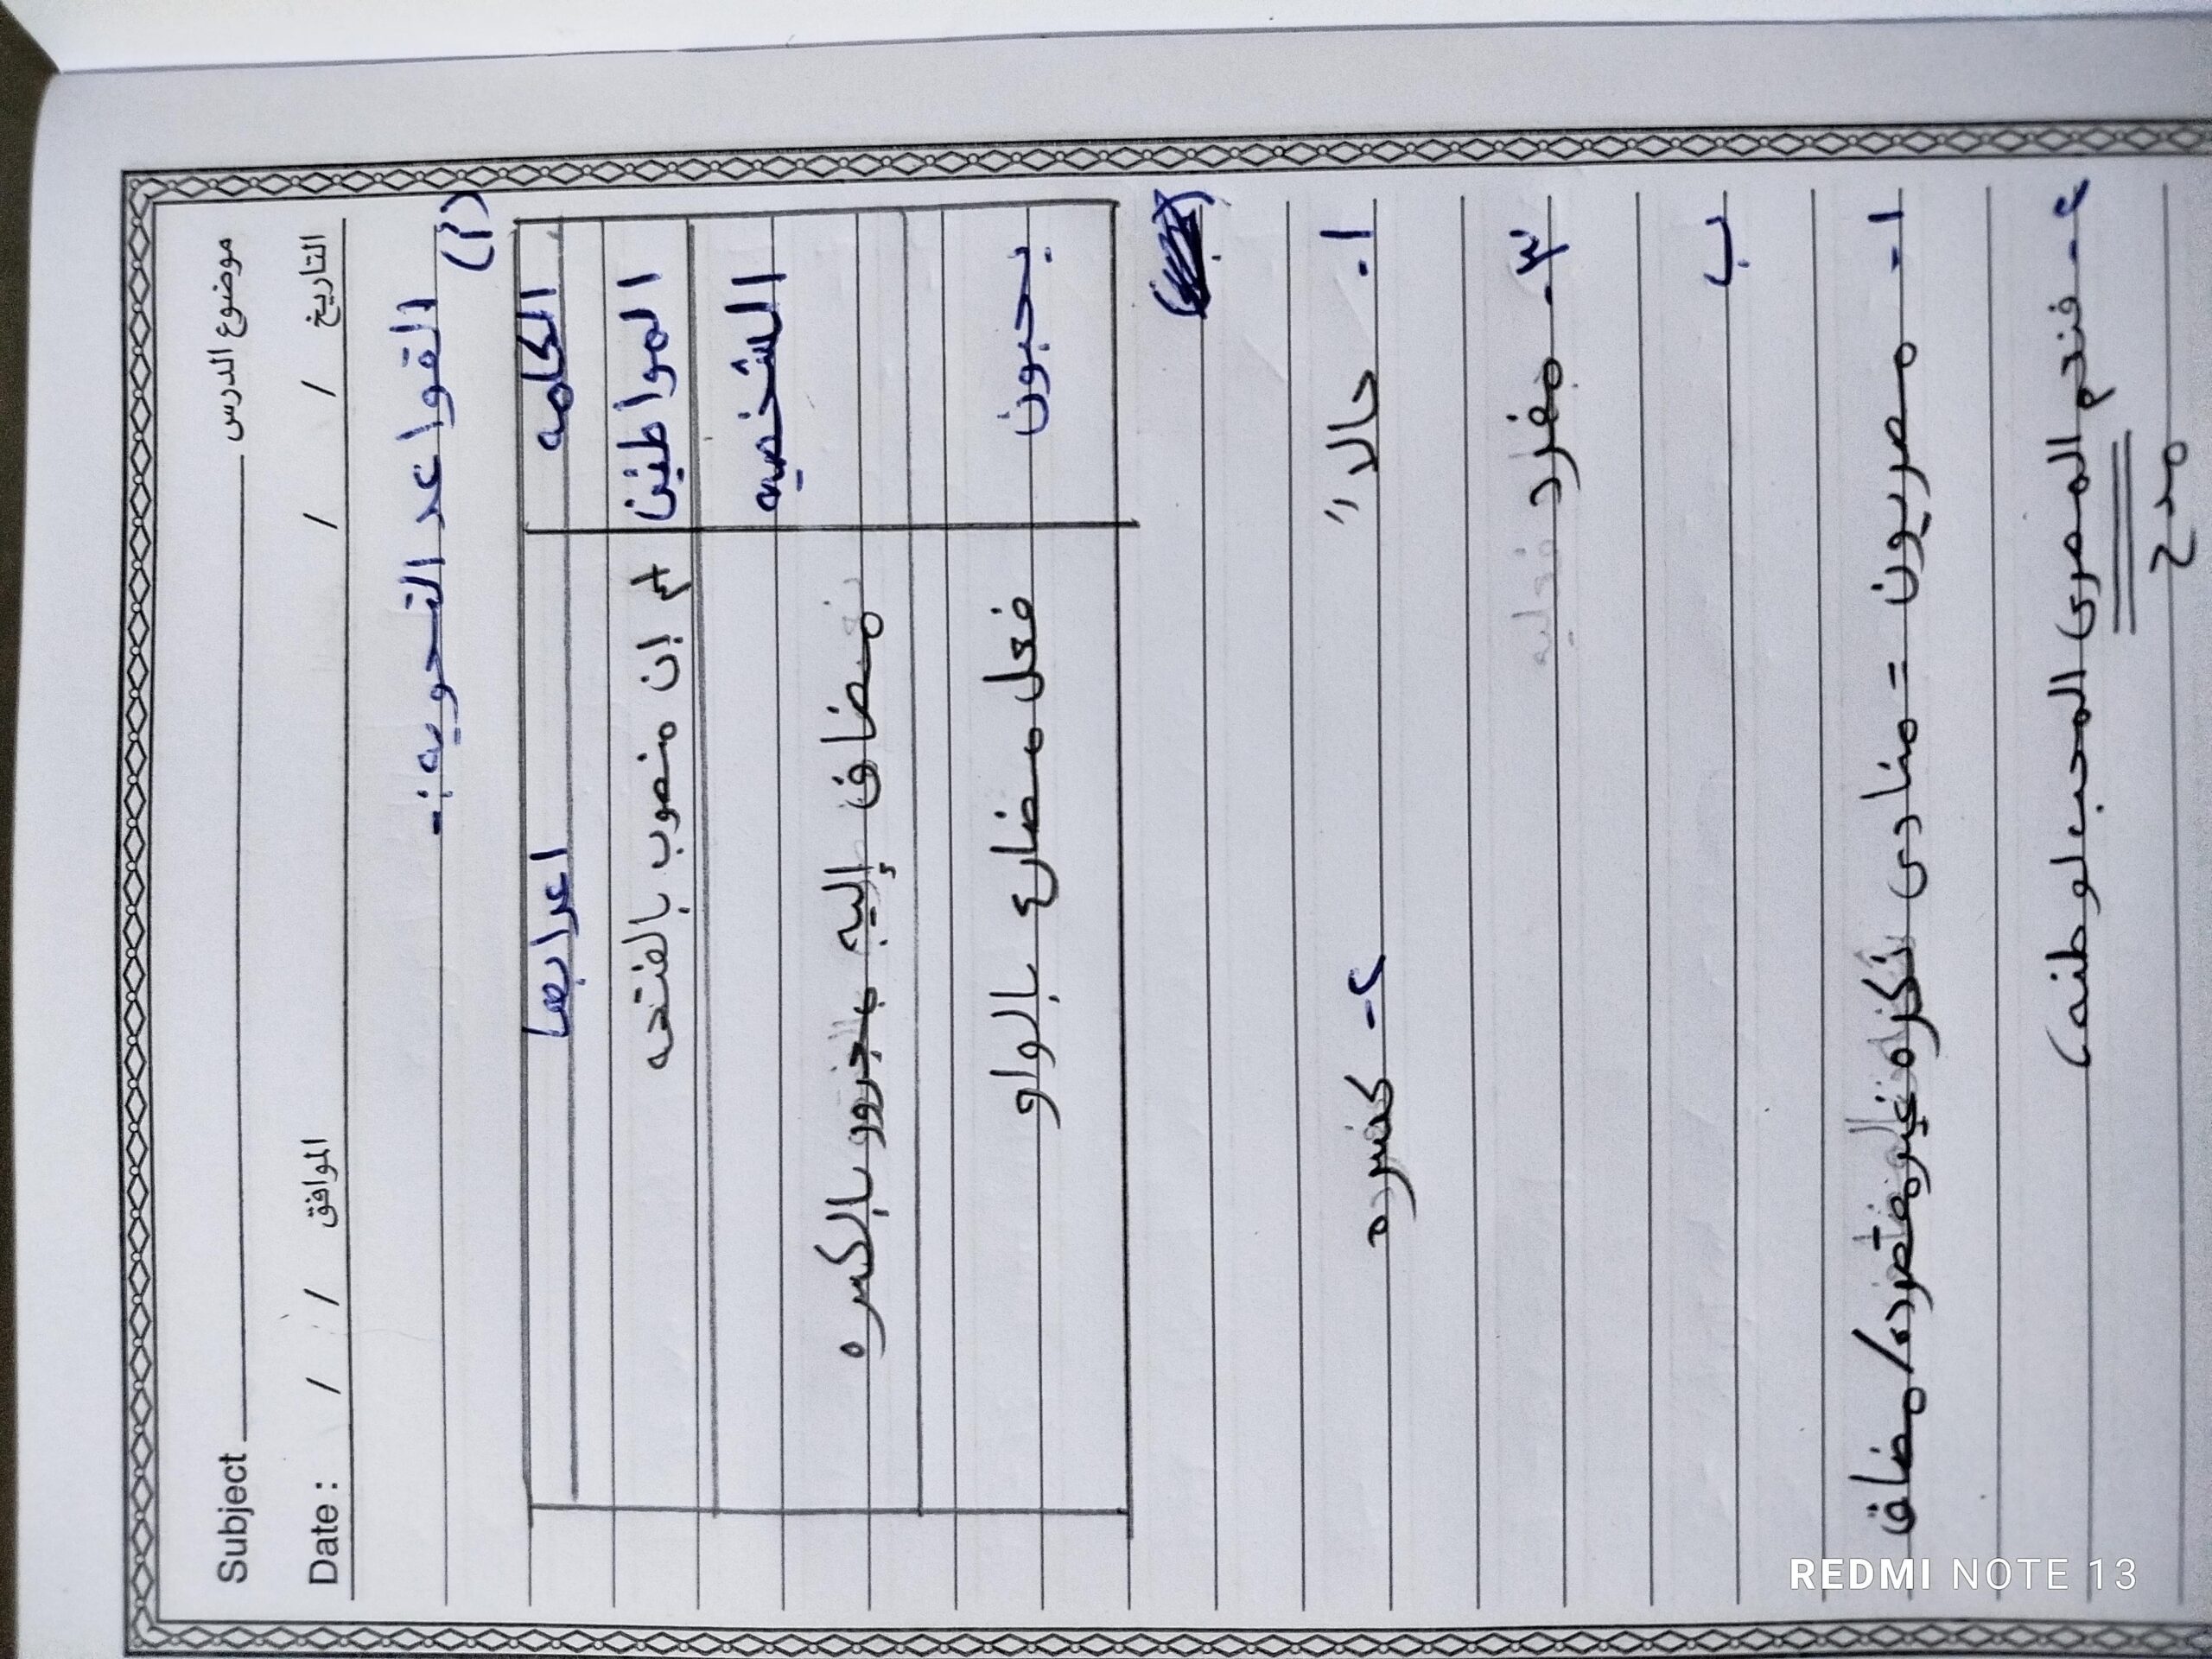 موضوع الدرس Subject
التاريخ / / الموافق / / Date :
القواعد النحويه :-
(أ)
الكلمه اعرابها
المواطنين إن منصوب بالفتحه
الشخصيه مضاف إليه مجرور بالكسره
يحبون فعل مضارع بالواو
١- حالاً ٢- كسره
٣- مفرد
ب
١- مصريون = منادى نكره غير مقصوده / مضاف
٢- فنحم المصرى المحب لوطنه)
مدح
REDMI NOTE 13